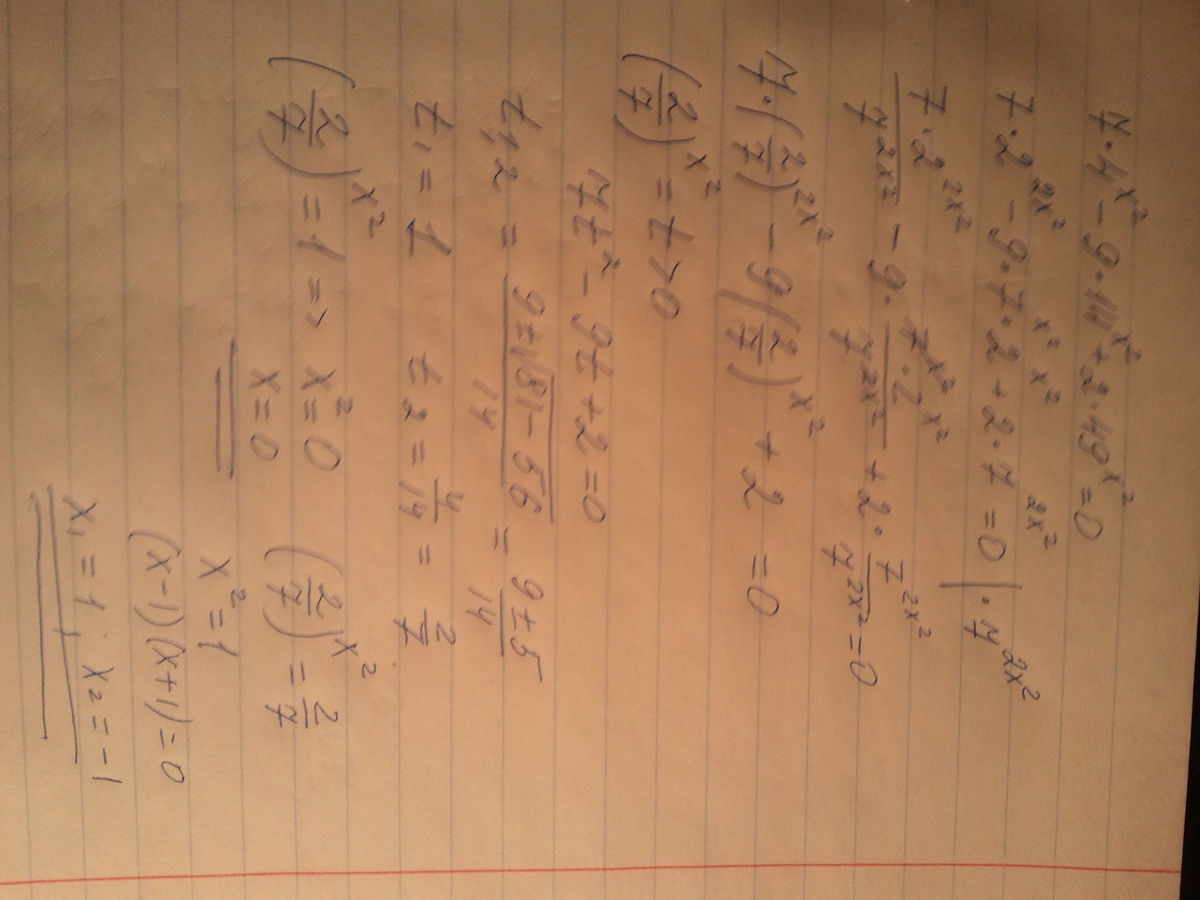 7·4^{x²} - 9·14^{x²} + 2·49^{x²} = 0
7·2^{2x²} - 9·7^{x²}·2^{x²} + 2·7^{2x²} = 0 | · 7^{2x²}
\frac{7·2^{2x²}}{7^{2x²}} - 9·\frac{7^{x²}·2^{x²}}{7^{2x²}} + 2·\frac{7^{2x²}}{7^{2x²}} = 0
7·(\frac{2}{7})^{2x²} - 9(\frac{2}{7})^{x²} + 2 = 0
(\frac{2}{7})^{x²} = t > 0
7t² - 9t + 2 = 0
t_{1,2} = \frac{9±√81-56}{14} = \frac{9±5}{14}
t₁ = 1 t₂ = \frac{4}{14} = \frac{2}{7}
(\frac{2}{7})^{x²} = 1 => x² = 0 (\frac{2}{7})^{x²} = \frac{2}{7}
x = 0 x² = 1
(x-1)(x+1) = 0
x₁ = 1; x₂ = -1